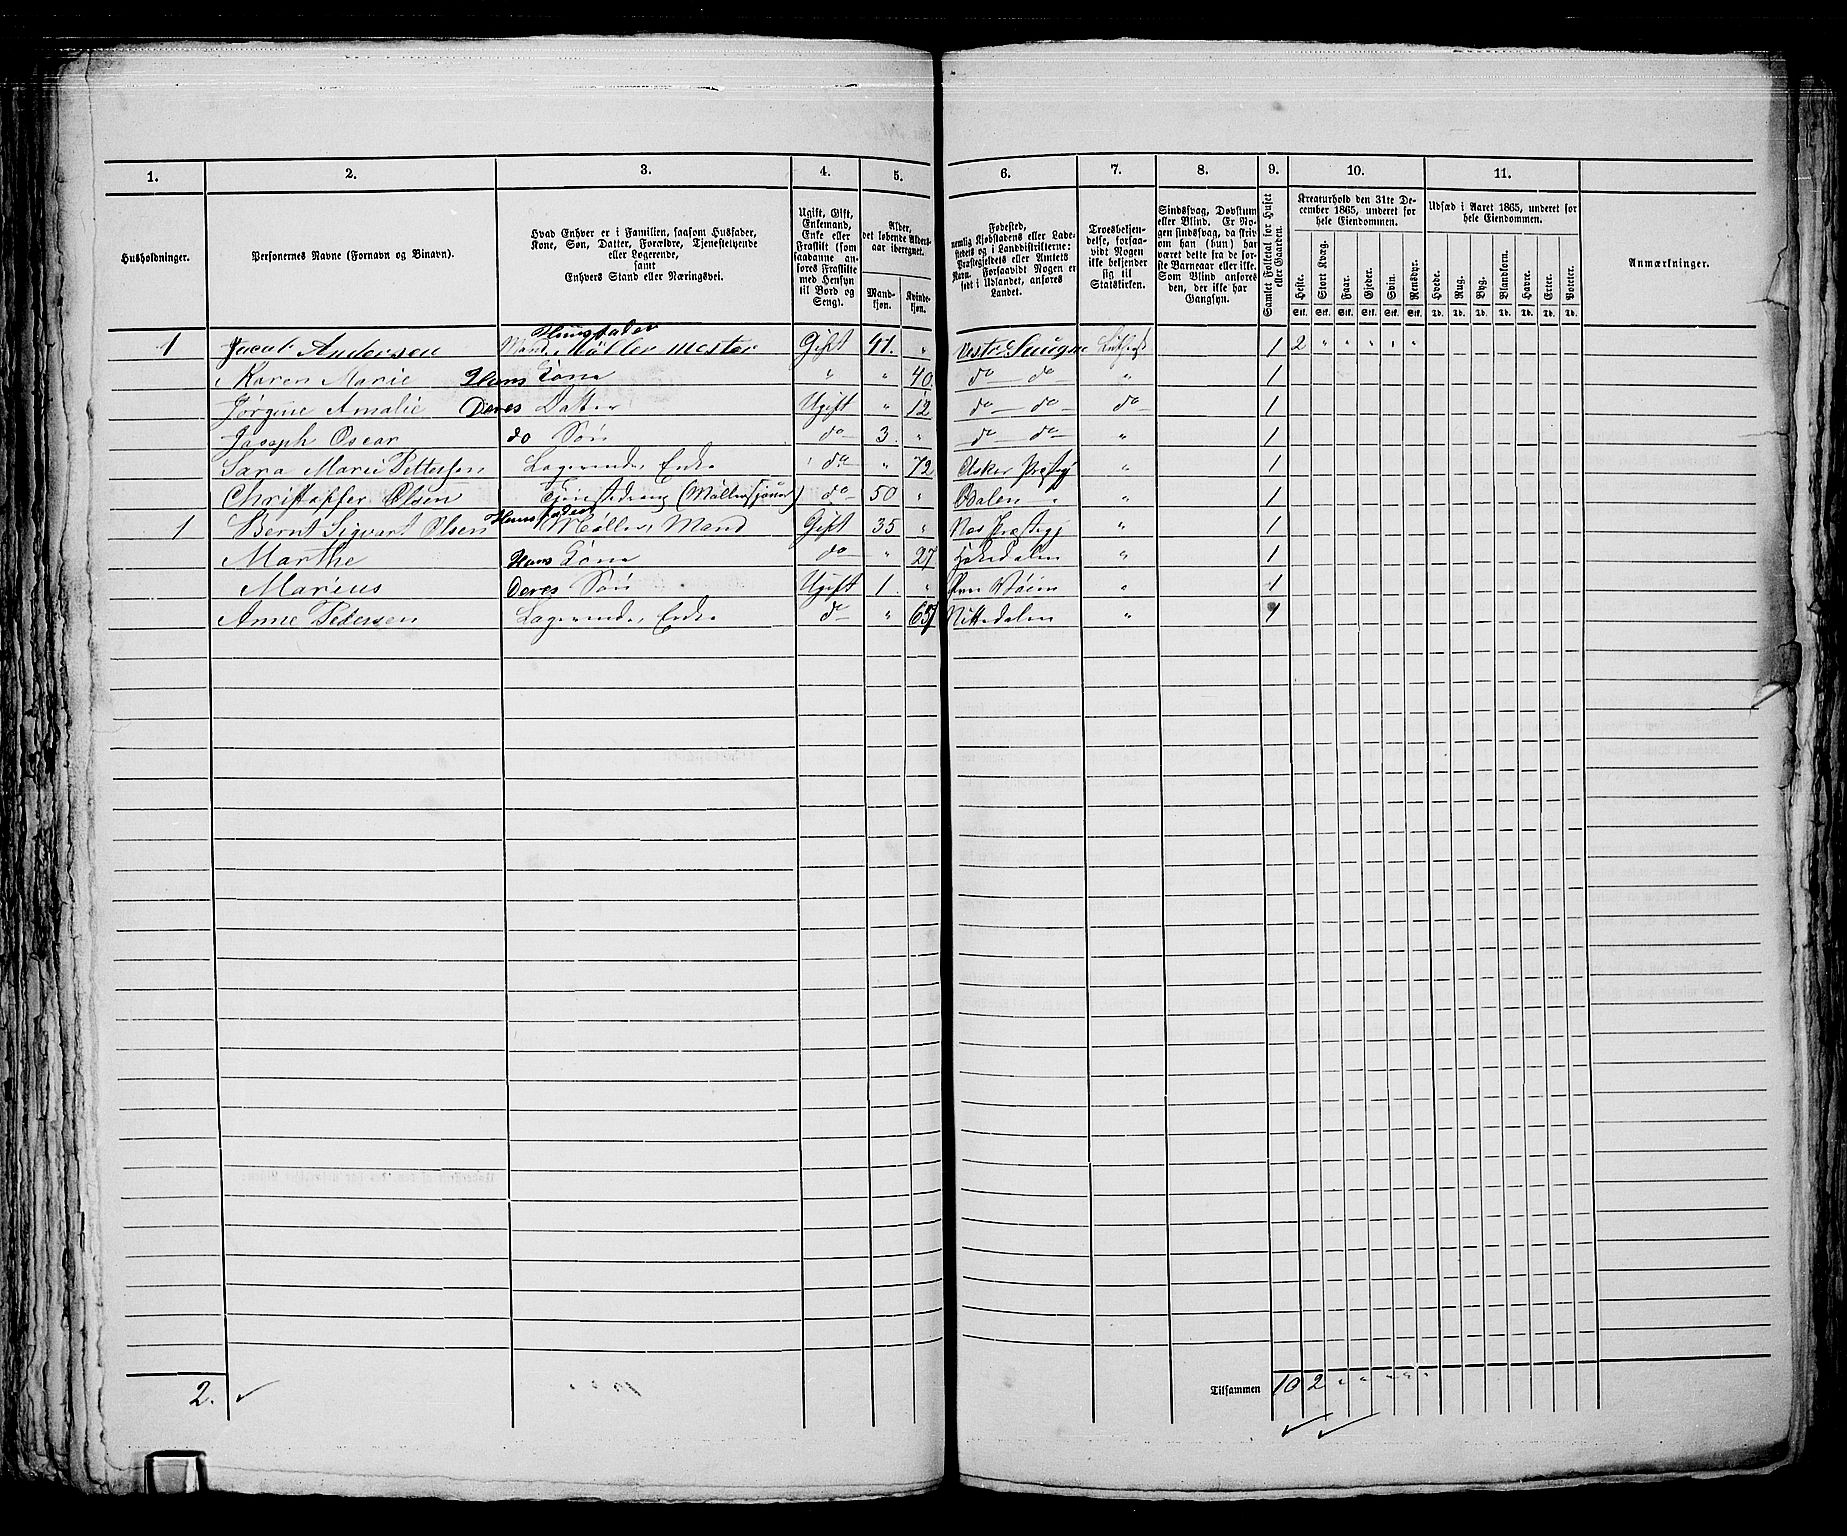 1. 2. 3. 4. 5. 6. 7. 8. 9. 10. 11.
Husholdninger.
Personernes Navne (Fornavn og Binavn).
Hvad Enhver er i Familien, saasom Husfader,
Kone, Søn, Datter, Forældre, Tjenestetyende
eller Logerende,
samt
Enhvers Stand eller Næringsvei.
Ugift, Gift,
Enkemand,
Enke eller
Fraskilt (som
saadanne an-
føres Fraskilte
med Hensyn
til Bord og
Seng).
Alder,
det løbende Alders-
aar iberegnet.
Mand-
kjøn.
Kvinde-
kjøn.
Fødested,
nemlig Kjøbstadens eller Lade-
stedets og i Landdistrikterne:
Præstegjeldets eller Amtets
Navn. Forsaavidt Nogen er
født i Udlandet, anføres
Landet.
Troesbekjen-
delse, forsaa-
vidt Nogen
ikke bekjender
sig til
Statskirken.
Sindssvag, Døvstum
eller Blind. Er No-
gen sindssvag, da skriv
om han (hun) har
været dette fra de før-
ste Barneaar eller ikke.
Som Blind anføres
den, der ikke har
Gangsyn.
Samlet Folketal for Huset
eller Gaarden.
Kreaturhold den 31te De-
cember 1865, underet for
hele Eiendommen.
Heste. Stort Kvæg. Faar. Gjeder. Svin. Rensdyr.
Stk. Stk. Stk. Stk. Stk. Stk.
Udsæd i Aaret 1865, underet for
hele Eiendommen.
Hvede. Rug. Byg. Blandkorn. Havre. Erter. Poteter.
Td. Td. Td. Td. Td. Td. Td.
Anmærkninger.
Huusfader
1 Jacob Andersen Mand, Møller mester Gift 41. " Vestre 1 2 " " " "
Karen Marie Hans Kone " " 40. do do " 1
Jørgine Amalie Deres Datter Ugift " 12 do do do 1
Joseph Oscar do Søn do 3. " do do " 1
Sara Marie Pettersen Logerende, Enke do " 72 Asker Præstgj " 1
Christopfer Olsen Tjenestedreng do 50 " " 1
Huusfader
1 Bernt Sigvart Olsen Møller, Mand Gift 35 " Nes Præstegj " 1
Marthe Hans Kone do " 27 Hakedalen " 1
Marius Deres Søn Ugift 1. " " 1
Anne Pedersen Logerende, Enke do " 65 Nittedalen " 1
2. Tilsammen 10 2 " " " "